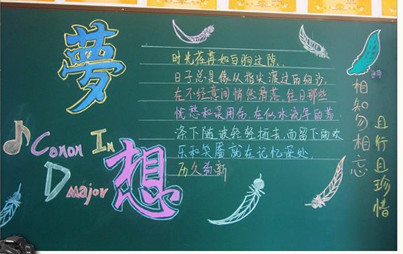 夢
想
Canon In
D major
时光荏苒如白驹过隙,
日子总是像从指尖渡过的细沙,
在不经意间悄然滑落,往日那些
忧愁和误用伤,在似水流年的荡
涤下随波轻轻逝去,而留下的欢
乐和笑靥就在记忆深处,
历久弥新
相知勿相忘
且行且珍惜